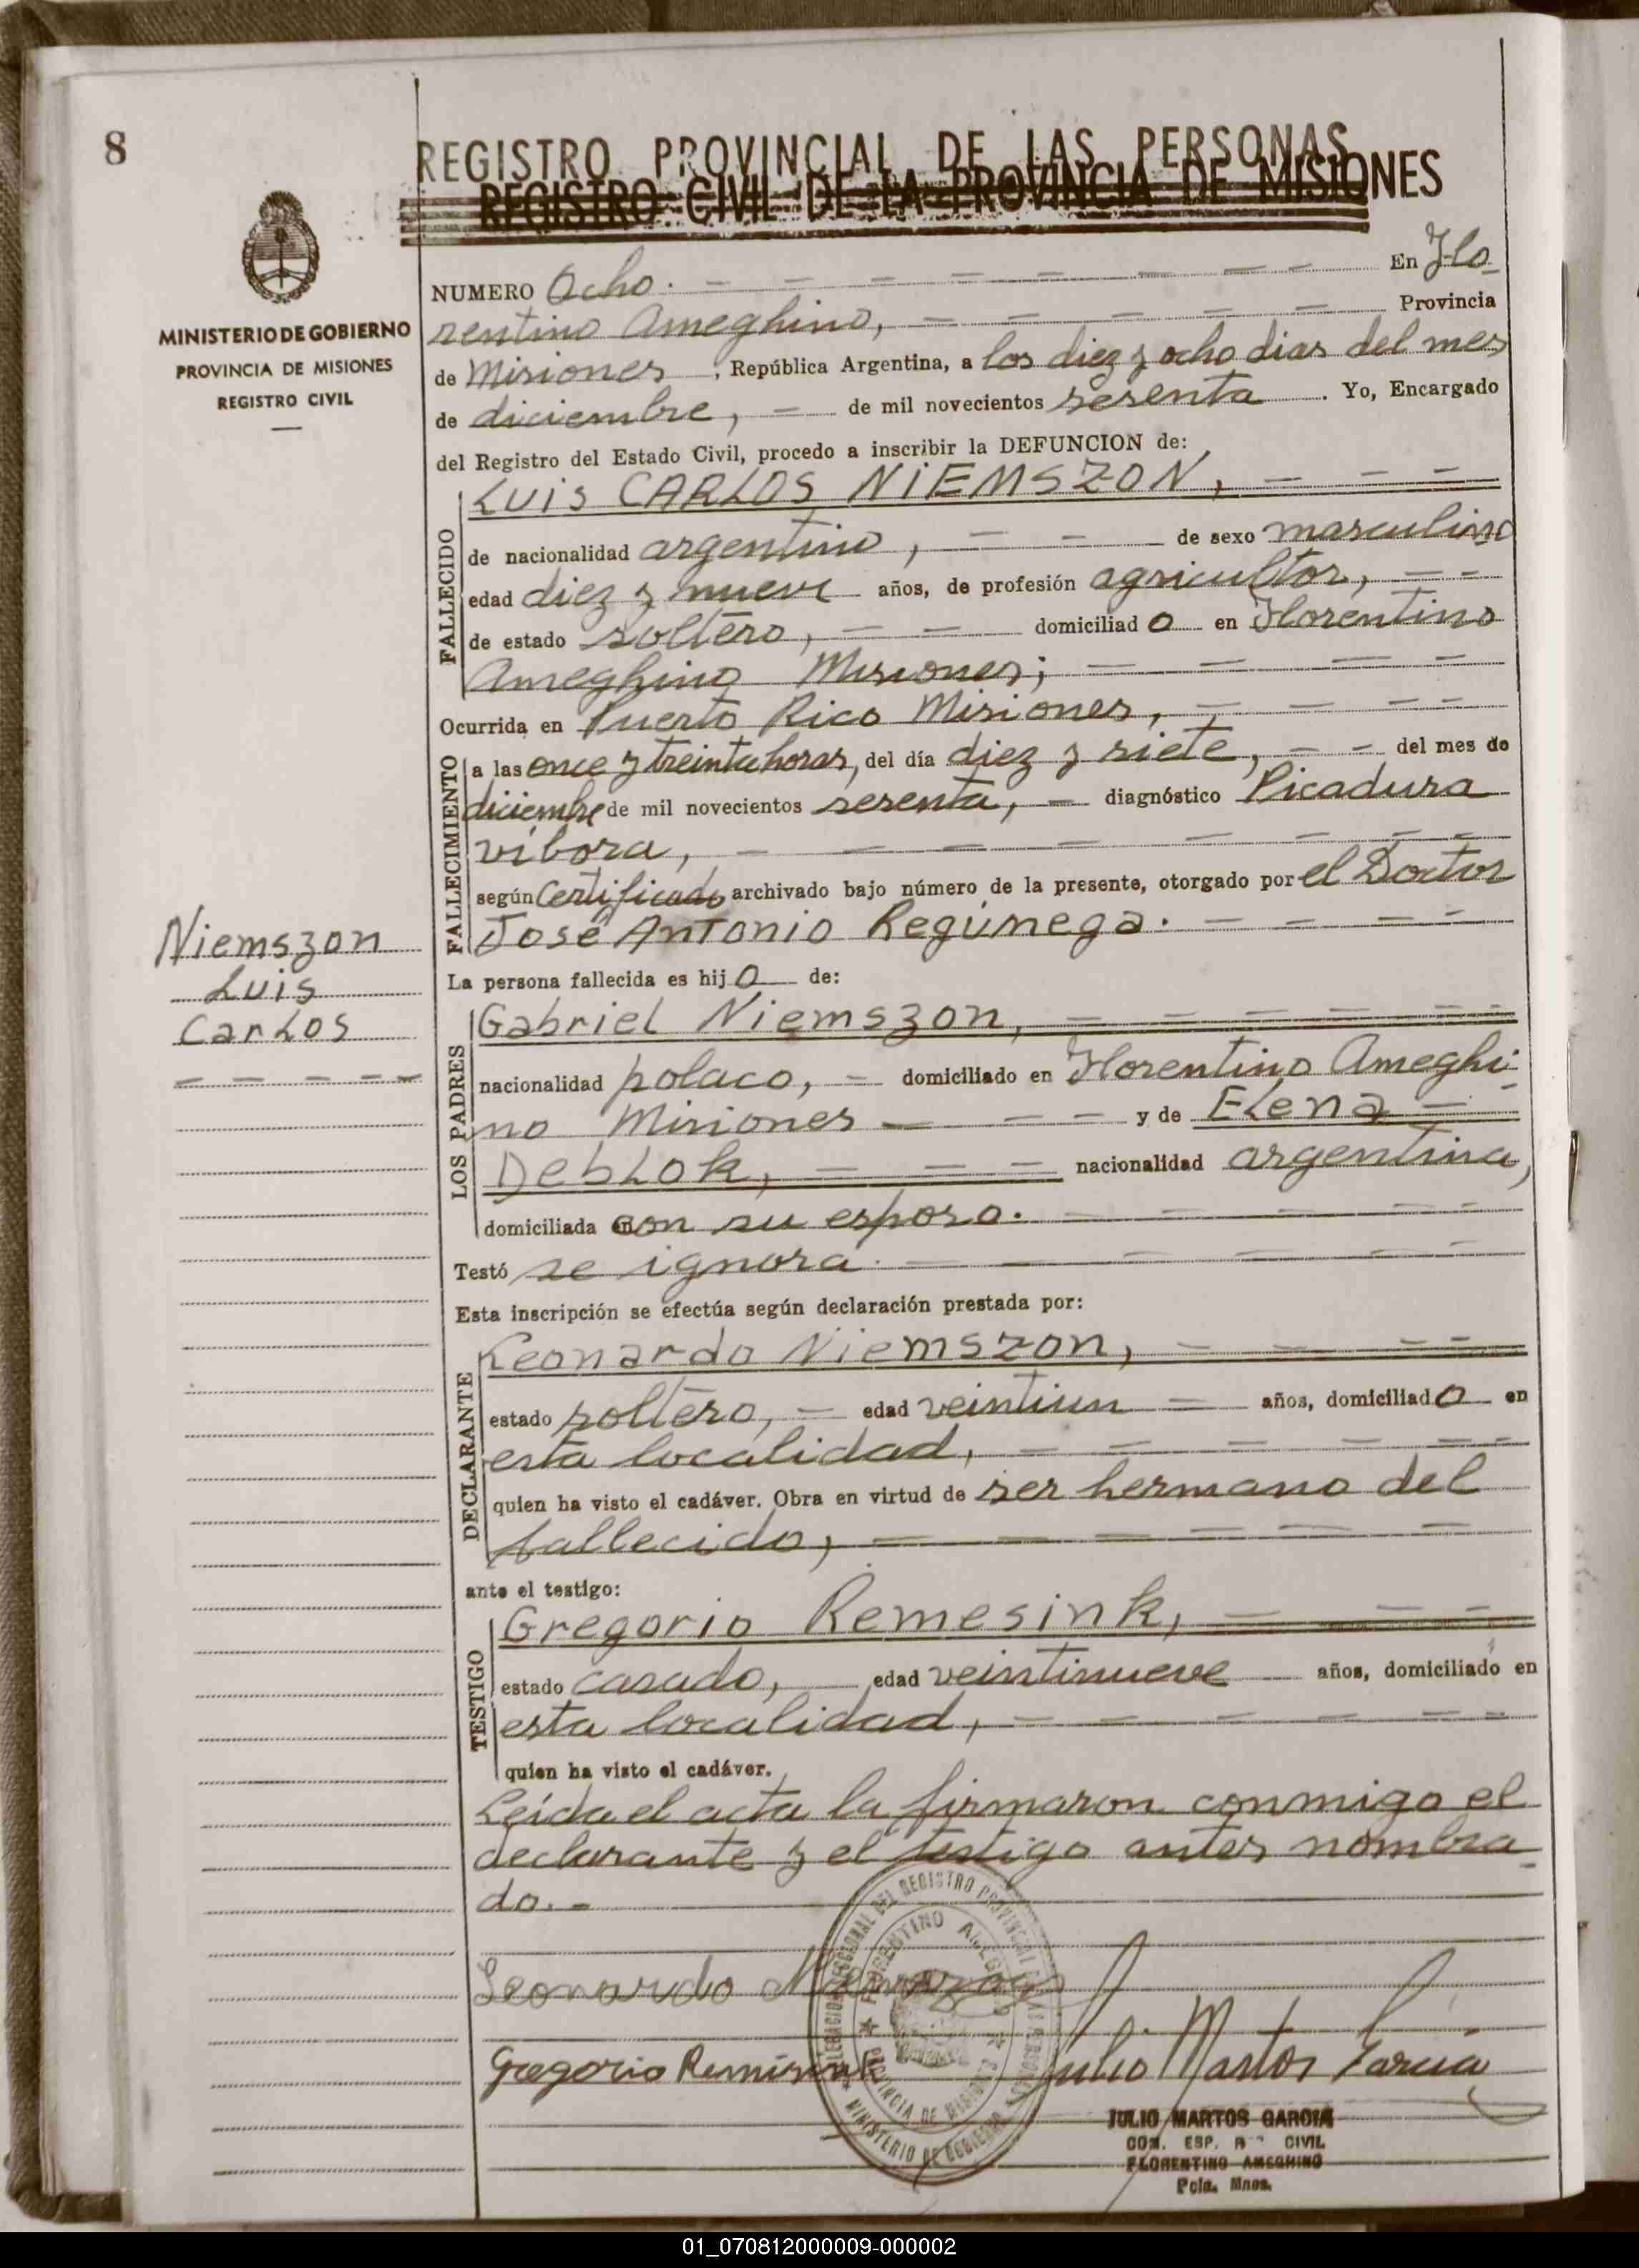 8
REGISTRO PROVINCIAL DE LAS PERSONAS
REGISTRO CIVIL DE LA PROVINCIA DE MISIONES
MINISTERIO DE GOBIERNO
PROVINCIA DE MISIONES
REGISTRO CIVIL
NUMERO Ocho. — — — — — — — En Flo-
rentino Ameghino, — — — — — Provincia
de Misiones, República Argentina, a los diez y ocho dias del mes
de diciembre, — de mil novecientos sesenta. Yo, Encargado
del Registro del Estado Civil, procedo a inscribir la DEFUNCION de:
FALLECIDO
LUIS CARLOS NIEMSZON, — — —
de nacionalidad argentino, — — de sexo masculino
edad diez y nueve años, de profesión agricultor, — —
de estado soltero, — — domiciliado en Florentino
Ameghino Misiones; — — — —
Ocurrida en Puerto Rico Misiones, — — — —
FALLECIMIENTO
a las once y treinta horas, del día diez y siete, — — del mes de
diciembre de mil novecientos sesenta, — diagnóstico Picadura
víbora, — — — — — — —
según Certificado archivado bajo número de la presente, otorgado por el Doctor
José Antonio Regúnega. — — — —
Niemszon
Luis
Carlos
— — — — —
La persona fallecida es hijo de:
LOS PADRES
Gabriel Niemszon, — — — — —
nacionalidad polaco, — domiciliado en Florentino Ameghi-
no Misiones — — — y de Elena —
Deblok, — — — nacionalidad argentina,
domiciliada con su esposo. — — — — —
Testó se ignora. — — — — —
Esta inscripción se efectúa según declaración prestada por:
DECLARANTE
Leonardo Niemszon, — — — —
estado soltero, — edad veintiun — años, domiciliado en
esta localidad, — — — — — —
quien ha visto el cadáver. Obra en virtud de ser hermano del
fallecido, — — — — — —
ante el testigo:
TESTIGO
Gregorio Remesink, — — —
estado casado, edad veintinueve años, domiciliado en
esta localidad, — — — — — —
quien ha visto el cadáver.
Leída el acta la firmaron conmigo el
declarante y el testigo antes nombra-
do. —
DELEGACION SECCIONAL DEL REGISTRO PROVINCIAL DE LAS PERSONAS
FLORENTINO AMEGHINO
PROVINCIA DE MISIONES
MINISTERIO DE GOBIERNO
Leonardo Niemszon
Gregorio Remisink
Julio Martos Garcia
JULIO MARTOS GARCIA
CIVIL
FLORENTINO AMEGHINO
Pcia. Mnes.
01_070812000009-000002